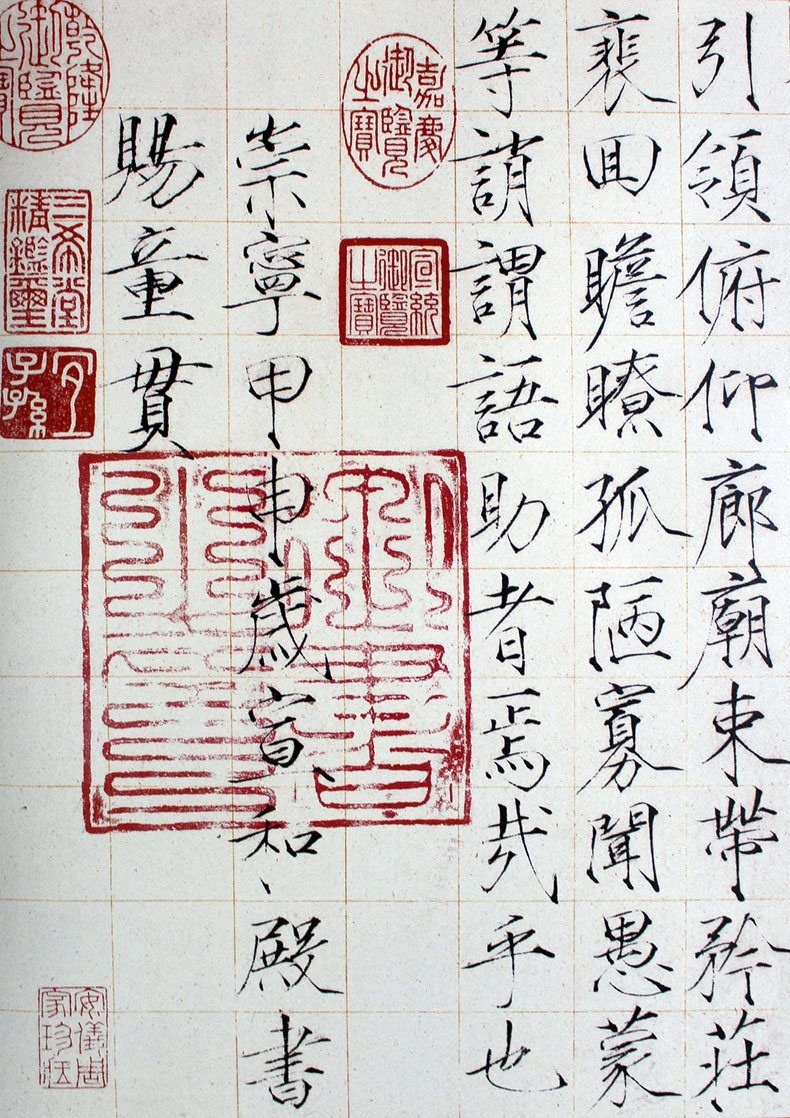 引領俯仰廊廟束帶矜莊
裵回瞻瞭孤陋寡聞愚蒙
等誚謂語助者焉哉乎也
嘉慶御覽之寶
宣統御覽之寶
崇寧甲申歲宣和殿書
賜童貫
乾隆御覽之寶
三希堂精鑑璽
宜子孫
安儀周家珍藏